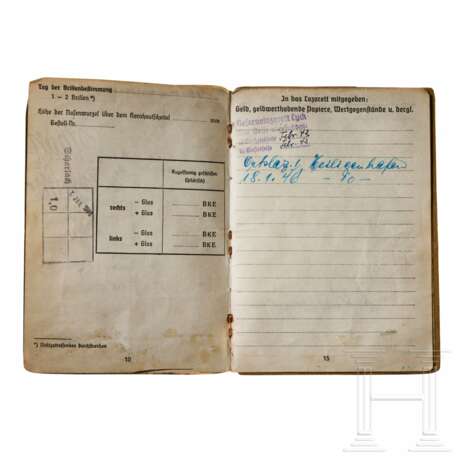 Tag der Brillenbestimmung
1 – 2 Brillen *)
Höhe der Nasenwurzel über dem Hornhautscheitel mm
Bestell-Nr.
Kugelförmig geschliffen
(sphärisch)
rechts
– Glas BKE
+ Glas BKE
links
– Glas BKE
+ Glas BKE
1,0
*) Nichtzutreffendes durchstreichen
10
In das Lazarett mitgegeben:
Geld, geldwerthabende Papiere, Wertgegenstände u. dergl.
Reservelazarett Lyck
Ortslaz. 1 Heiligenhafen
18.1.46 – 10 –
15